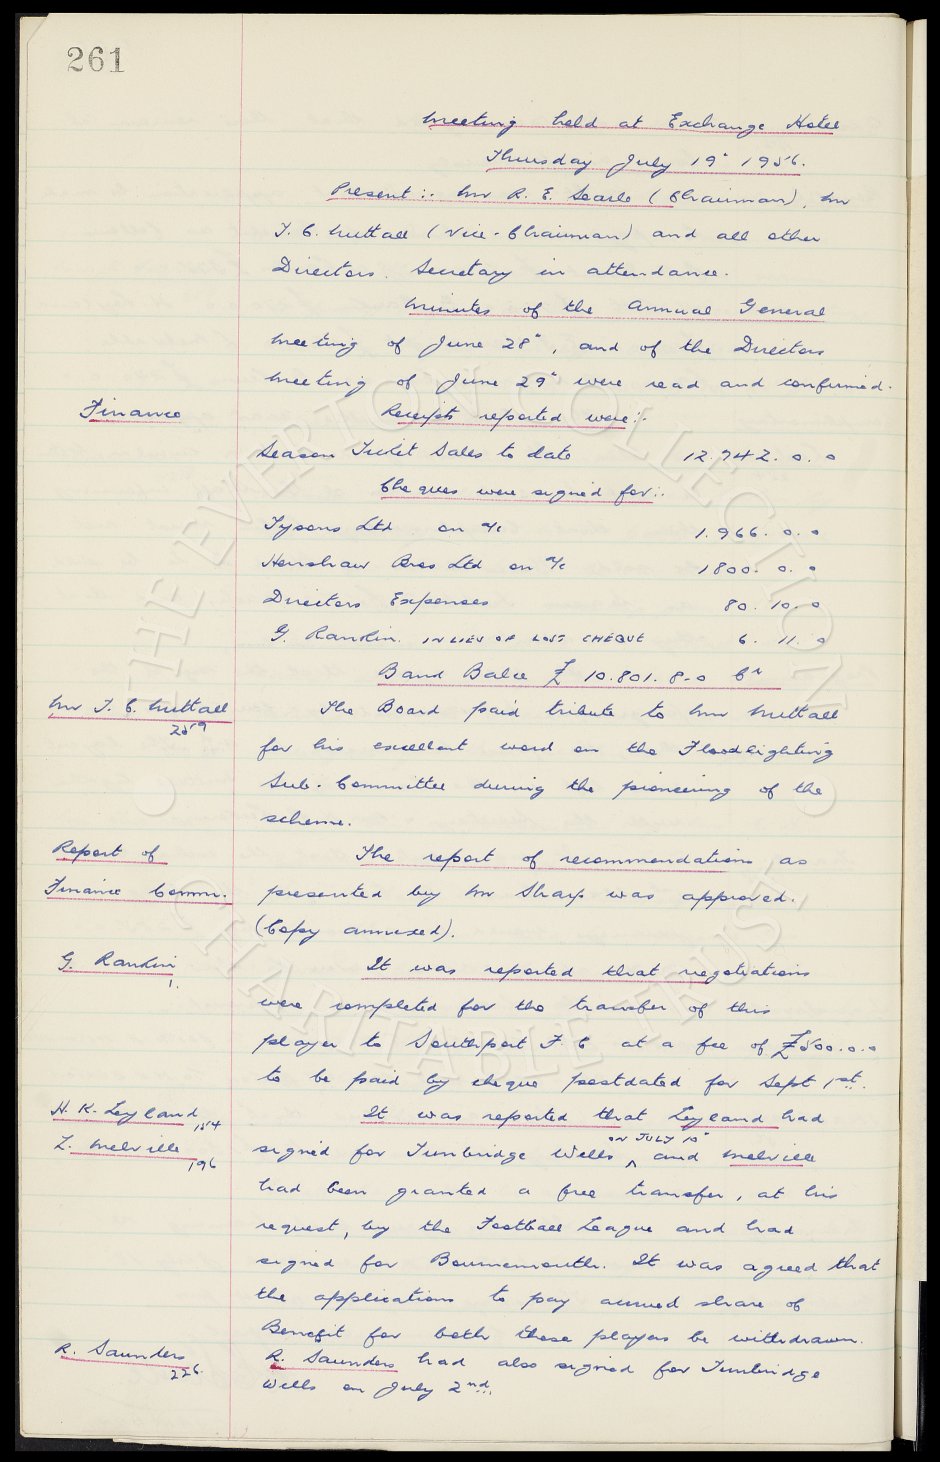 261
Meeting held at Exchange Hotel
Thursday July 19" 1956.
Present:- Mr R. E. Searle (Chairman), Mr
T. C. Nuttall (Vice-Chairman) and all other
Directors. Secretary in attendance.
Minutes of the Annual General
Meeting of June 28", and of the Directors
Meeting of June 29" were read and confirmed.
Finance
Receipts reported were:-
Season Ticket Sales to date 12.742. 0. 0
Cheques were signed for:-
Tysons Ltd on a/c 1.966. 0. 0
Henshaw Bros Ltd on a/c 1800. 0. 0
Directors Expenses 80. 10. 0
G. Rankin. IN LIEU OF LOST CHEQUE 6. 11. 0
Bank Balce £ 10.801. 8. 0 Cr
Mr T. C. Nuttall
259
The Board paid tribute to Mr Nuttall
for his excellent work on the Floodlighting
Sub-Committee during the pioneering of the
scheme.
Report of
Finance Comm.
The report of recommendations as
presented by Mr Sharp was approved.
(Copy annexed).
G. Rankin
1.
It was reported that negotiations
were completed for the transfer of this
player to Southport F. C at a fee of £500. 0. 0
to be paid by cheque postdated for Sept 1st.
H. K. Leyland 154
L. Melville 196
It was reported that Leyland had
signed for Tunbridge Wells ON JULY 10" and Melville
had been granted a free transfer, at his
request, by the Football League and had
signed for Bournemouth. It was agreed that
the applications to pay accrued share of
Benefit for both these players be withdrawn.
R. Saunders
226.
R. Saunders had also signed for Tunbridge
Wells on July 2nd.
THE EVERTON COLLECTION
CHARITABLE TRUST